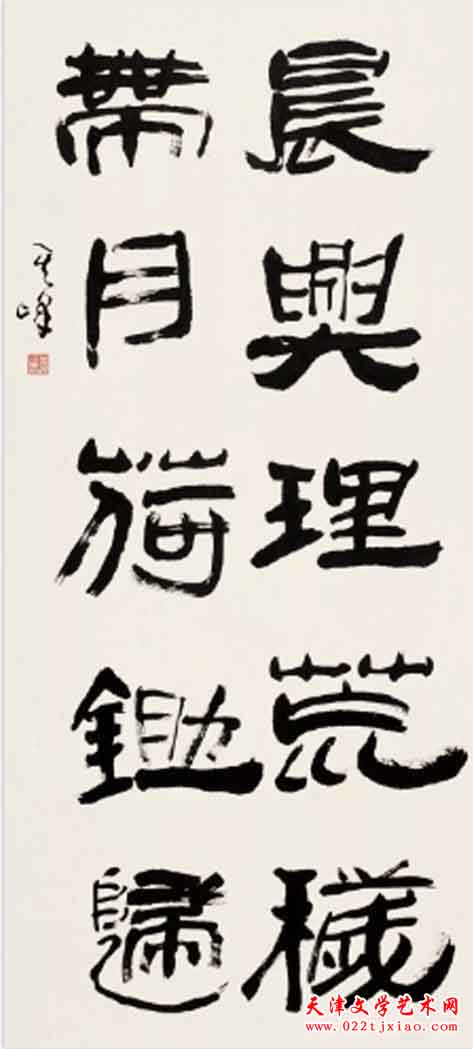 晨興理荒穢
帶月荷鋤歸
其峰
天津文学艺术网
www.022tjxiao.com